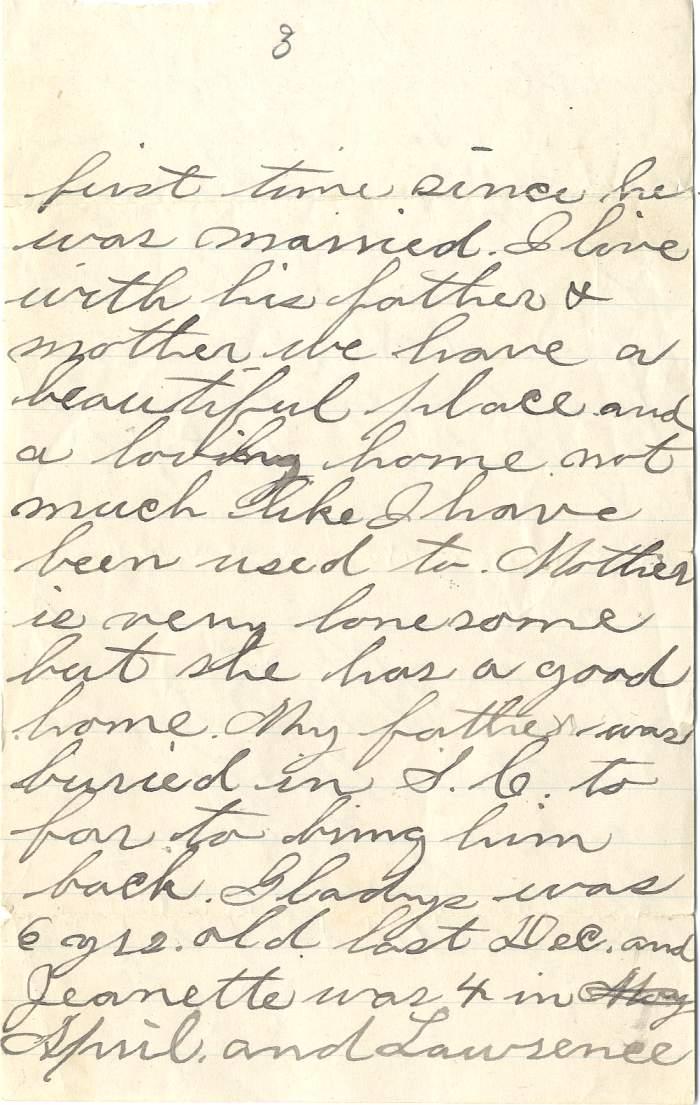 3
first time since he
was married. I live
with his father &
mother we have a
beautiful place and
a loving home not
much like I have
been used to. Mother
is very lonesome
but she has a good
home. My father was
buried in S. C. to
far to bring him
back. Gladys was
6 yrs. old last Dec. and
Jeanette was 4 in May
April. and Lawrence